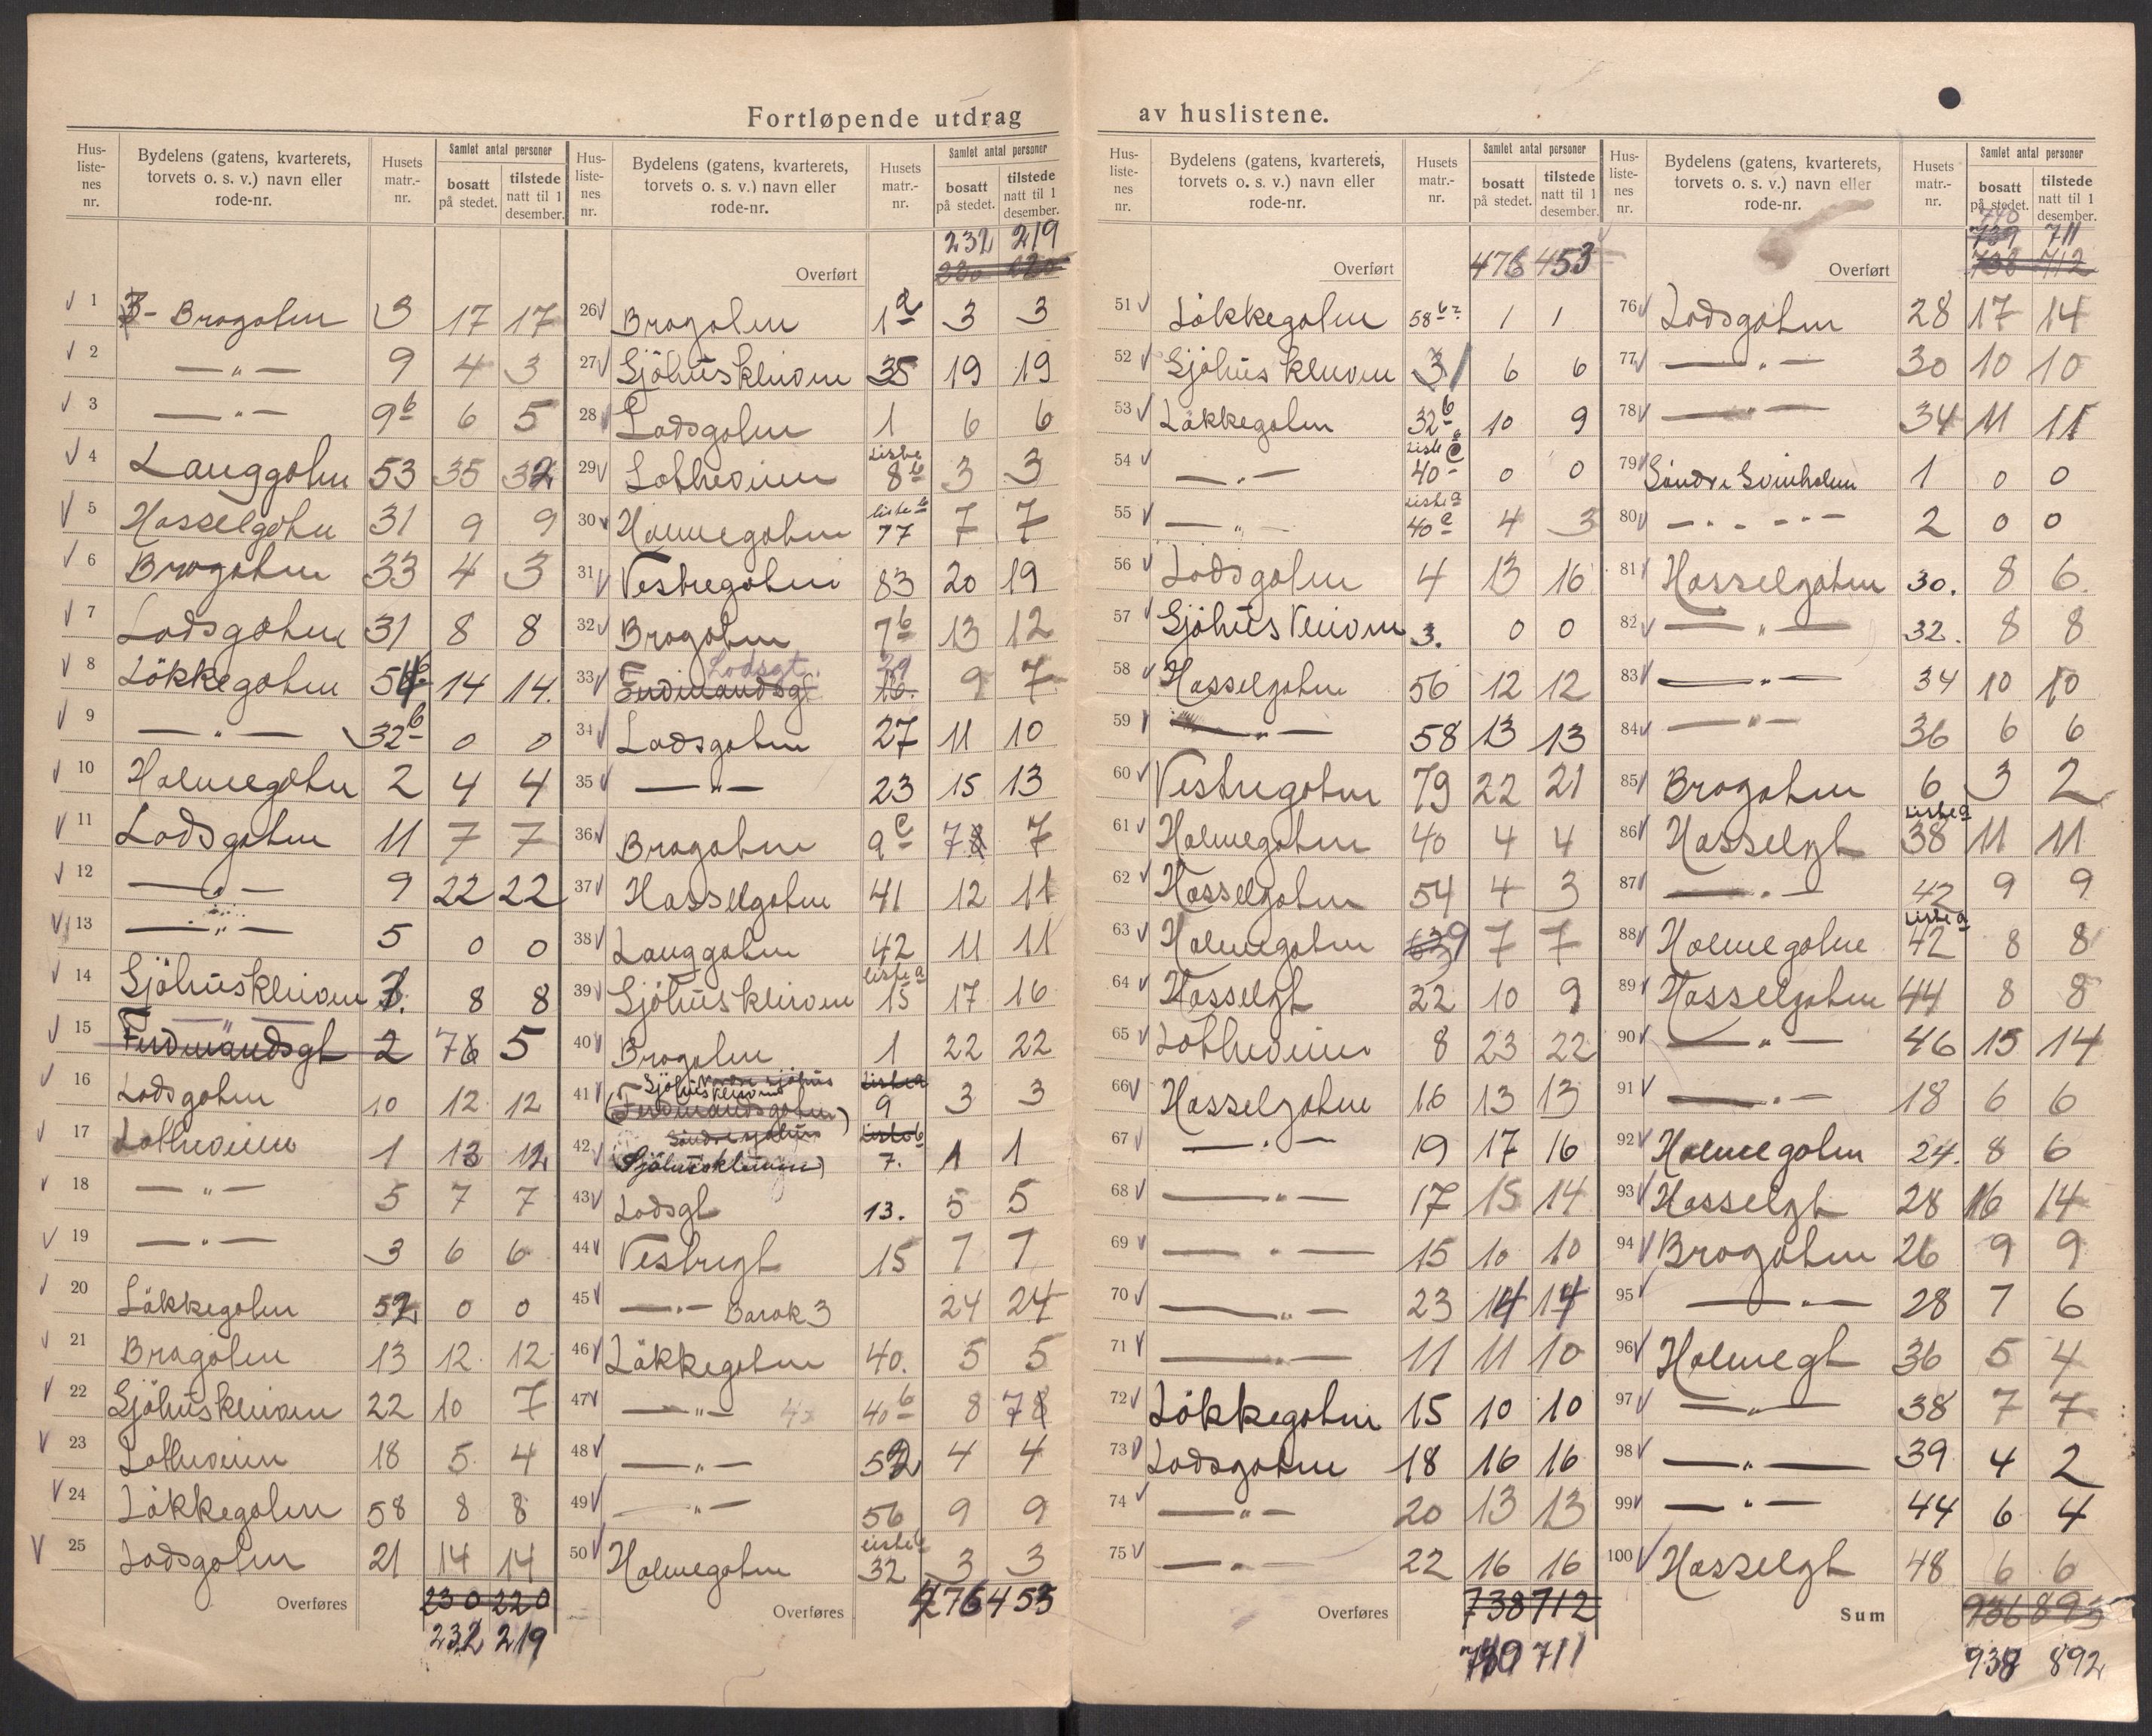 Fortløpende utdrag av huslistene.
Hus-liste-nes nr. | Bydelens (gatens, kvarterets, torvets o. s. v.) navn eller rode-nr. | Husets matr.-nr. | Samlet antal personer bosatt på stedet. | tilstede natt til 1 desember.
1 Bragaten 3 17 17
2 — " — 9 4 3
3 — " — 9b 6 5
4 Langgaten 53 35 32
5 Hasselgaten 31 9 9
6 Bragaten 33 4 3
7 Lodsgaten 31 8 8
8 Løkkegaten 54b 14 14.
9 — " — 32b 0 0
10 Holmegaten 2 4 4
11 Lodsgaten 11 7 7
12 — " — 9 22 22
13 — " — 5 0 0
14 Sjøhuskleiven 1. 8 8
15 — " — Ferdinandsgt 2 7 5
16 Lodsgaten 10 12 12
17 Lottheveien 1 13 12
18 — " — 5 7 7
19 — " — 3 6 6
20 Løkkegaten 52 0 0
21 Bragaten 13 12 12
22 Sjøhuskleiven 22 10 7
23 Lottheveien 18 5 4
24 Løkkegaten 58 8 8
25 Lodsgaten 21 14 14
Overføres 230 220
232 219
Hus-liste-nes nr. | Bydelens (gatens, kvarterets, torvets o. s. v.) navn eller rode-nr. | Husets matr.-nr. | Samlet antal personer bosatt på stedet. | tilstede natt til 1 desember.
232 219
Overført 220
26 Bragaten 1a 3 3
27 Sjøhuskleiven 35 19 19
28 Lodsgaten 1 6 6
29 Lottheveien Liste 8b 3 3
30 Holmegaten liste 77 7 7
31 Vestregaten 83 20 19
32 Bragaten 7b 13 12
33 Lodsgt. Ferdinandsgt 29 16. 9 7
34 Lodsgaten 27 11 10
35 — " — 23 15 13
36 Bragaten 9c 7 7
37 Hasselgaten 41 12 11
38 Langgaten 42 11 11
39 Sjøhuskleiven liste a 15 17 16
40 Bragaten 1 22 22
41 Sjøhuskleiven (Ferdinandsgaten) Liste a 9 3 3
42 (Sjøhuskleiven) Liste b 7. 1 1
43 Lodsgt 13. 5 5
44 Vestregt 15 7 7
45 — " — Barak 3 24 24
46 Løkkegaten 40. 5 5
47 — " — 40b 8 7
48 — " — 52 4 4
49 — " — 56 9 9
50 Holmegaten liste 32 3 3
Overføres 476 453
Hus-liste-nes nr. | Bydelens (gatens, kvarterets, torvets o. s. v.) navn eller rode-nr. | Husets matr.-nr. | Samlet antal personer bosatt på stedet. | tilstede natt til 1 desember.
Overført 476 453
51 Løkkegaten 58b 1 1
52 Sjøhuskleiven 31 6 6
53 Løkkegaten 32b 10 9
54 — " — Liste 40 0 0
55 — " — Liste a 40c 4 3
56 Lodsgaten 4 13 16
57 Sjøhusveien 3. 0 0
58 Hasselgaten 56 12 12
59 — " — 58 13 13
60 Vestregaten 79 22 21
61 Holmegaten 40 4 4
62 Hasselgaten 54 4 3
63 Holmegaten 39 7 7
64 Hasselgt 22 10 9
65 Lottheveien 8 23 22
66 Hasselgaten 16 13 13
67 — " — 19 17 16
68 — " — 17 15 14
69 — " — 15 10 10
70 — " — 23 14 14
71 — " — 11 11 10
72 Løkkegaten 15 10 10
73 Lodsgaten 18 16 16
74 — " — 20 13 13
75 — " — 22 16 16
Overføres 738 712
739 711
Hus-liste-nes nr. | Bydelens (gatens, kvarterets, torvets o. s. v.) navn eller rode-nr. | Husets matr.-nr. | Samlet antal personer bosatt på stedet. | tilstede natt til 1 desember.
740
739 711
Overført 738 712
76 Lodsgaten 28 17 14
77 — " — 30 10 10
78 — " — 34 11 11
79 Søndre Svinholmen 1 0 0
80 — " — 2 0 0
81 Hasselgaten 30. 8 6.
82 — " — 32. 8 8
83 — " — 34 10 10
84 — " — 36 6 6
85 Bragaten 6 3 2
86 Hasselgt Liste a 38 11 11
87 — " — 42 9 9
88 Holmegaten Liste a 42 8 8
89 Hasselgaten 44 8 8
90 — " — 46 15 14
91 — " — 18 6 6
92 Holmegaten 24. 8 6
93 Hasselgt 28 16 14
94 Bragaten 26 9 9
95 — " — 28 7 6
96 Holmegt 36 5 4
97 — " — 38 7 7
98 — " — 39 4 2
99 — " — 44 6 4
100 Hasselgt 48 6 6
Sum 936 893
938 892